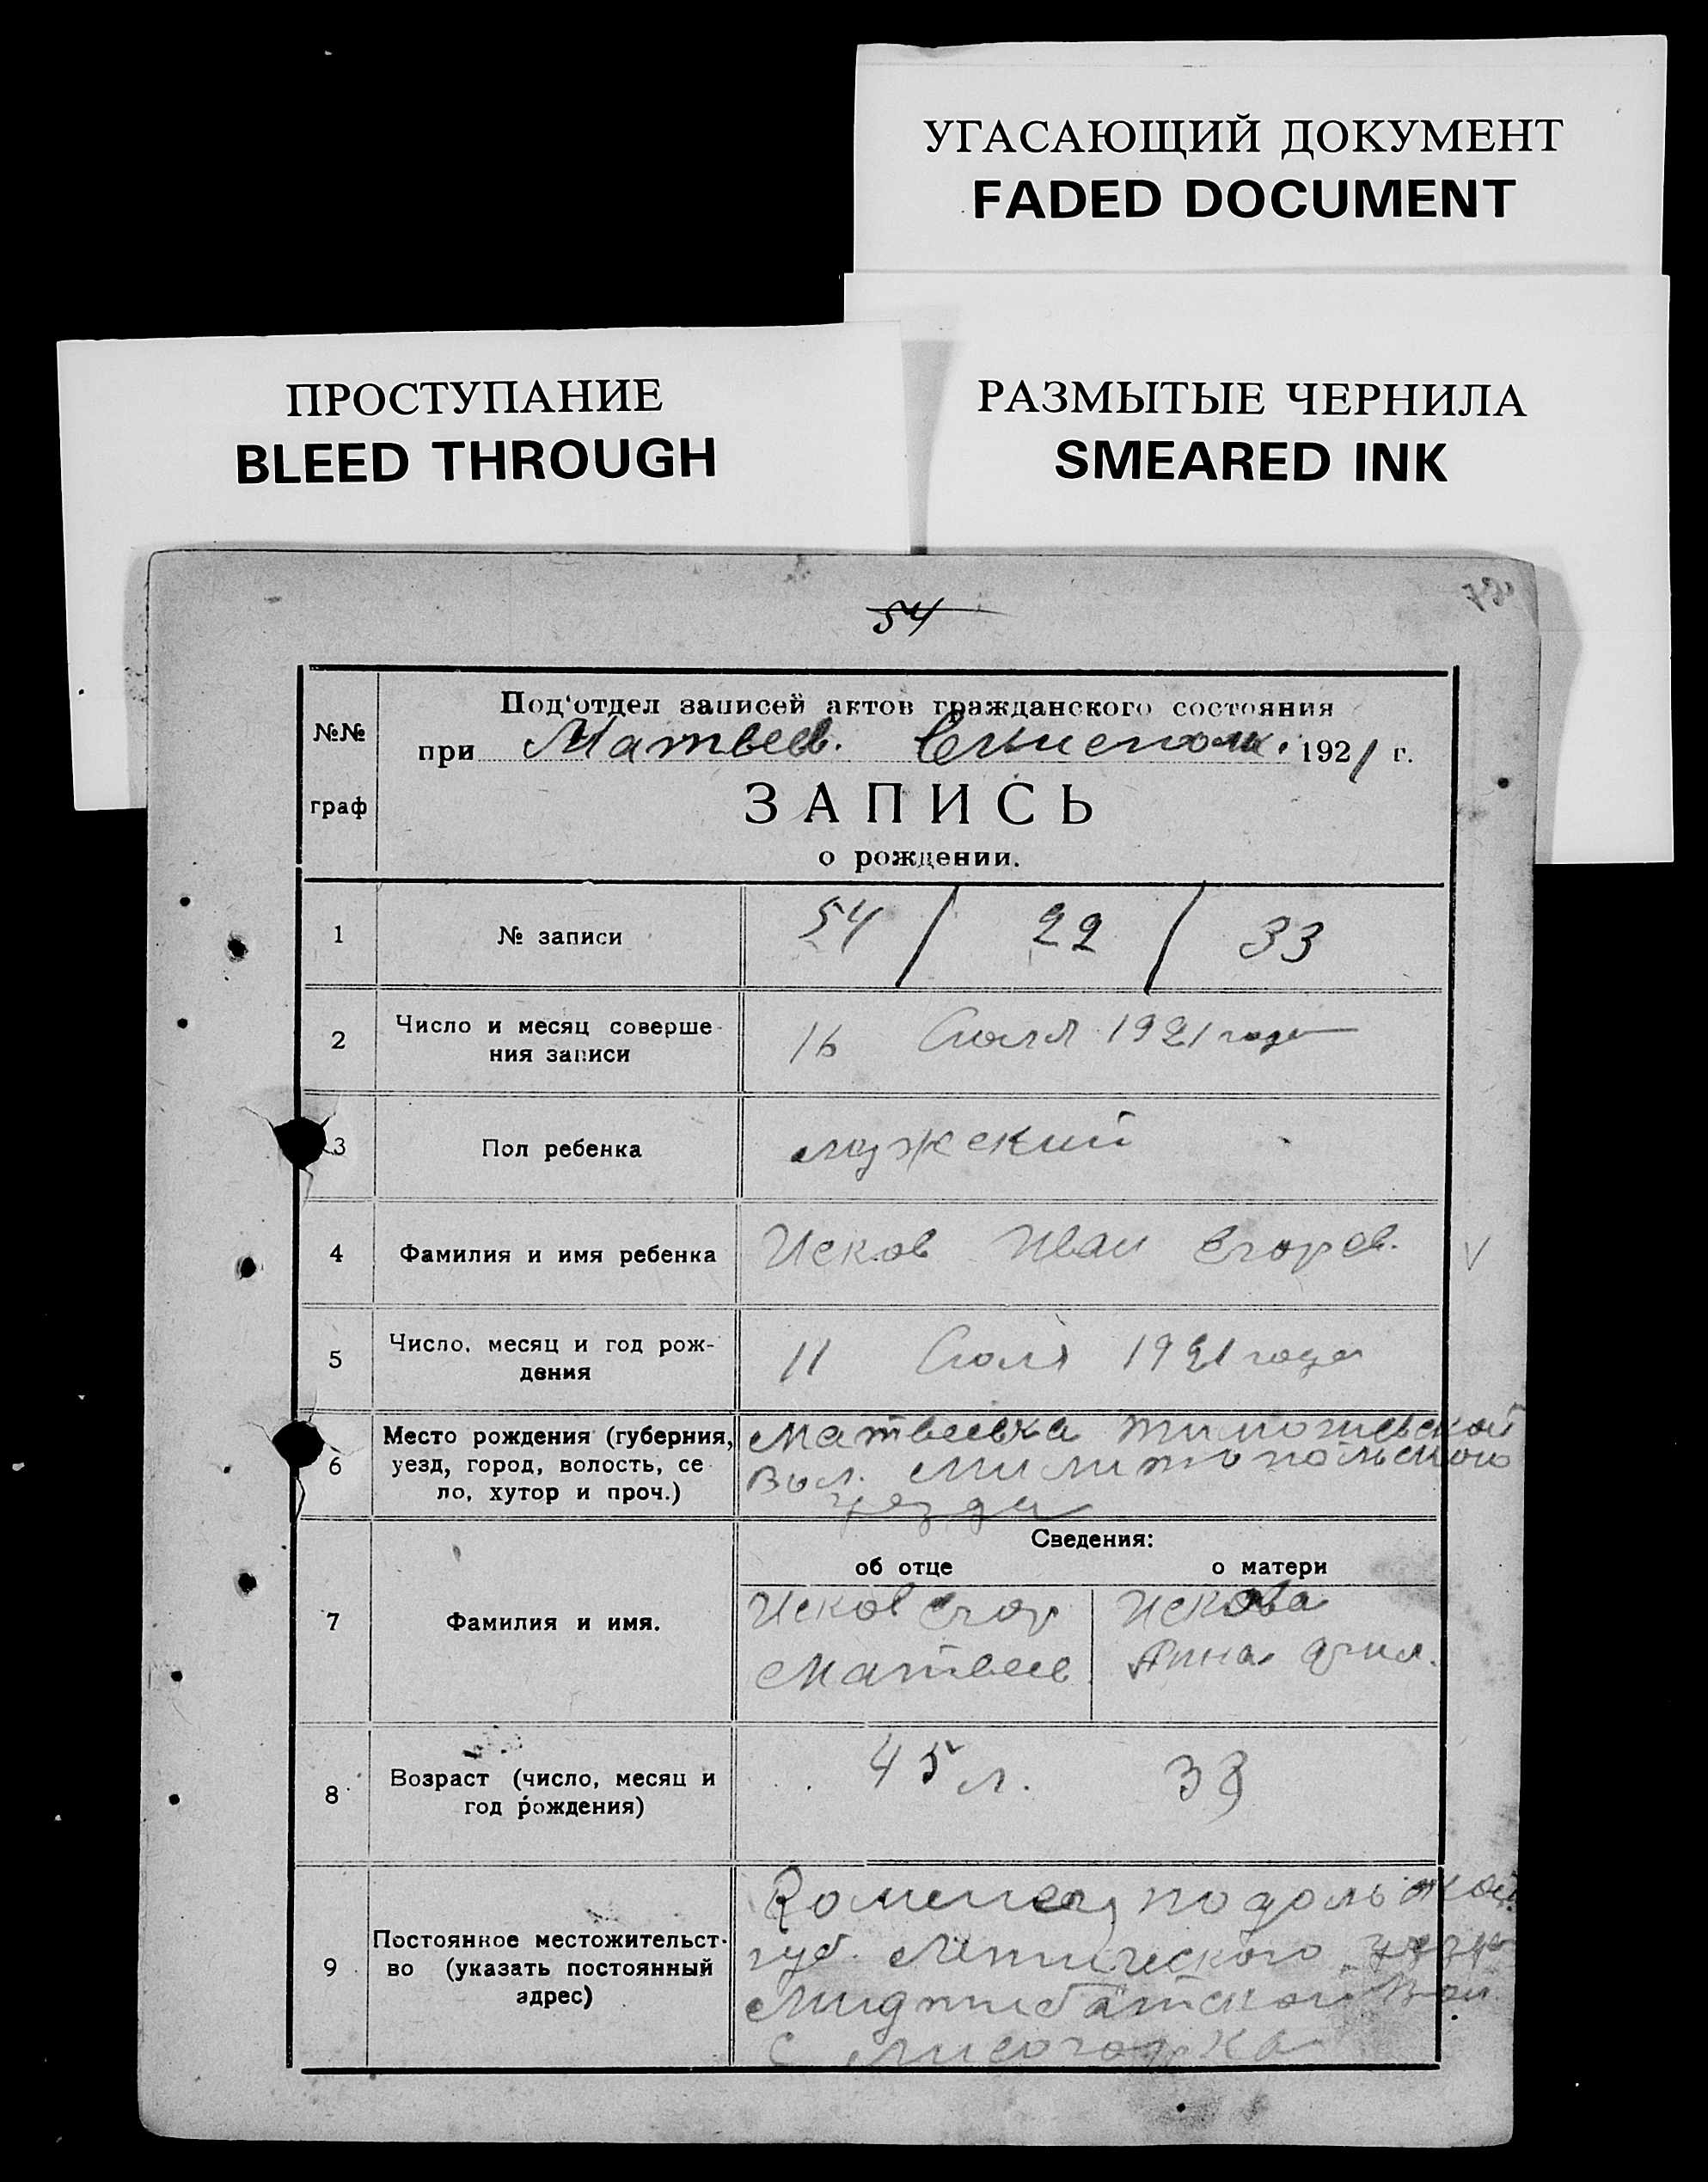 УГАСАЮЩИЙ ДОКУМЕНТ
FADED DOCUMENT
ПРОСТУПАНИЕ
BLEED THROUGH
РАЗМЫТЫЕ ЧЕРНИЛА
SMEARED INK
54
№№
граф
Под'отдел записей актов гражданского состояния
при Матвеев. 1921 г.
ЗАПИСЬ
о рождении.
1 № записи 54 / 22 / 33
2 Число и месяц соверше-
ния записи
16 Июля 1921 года
3 Пол ребенка мужский
4 Фамилия и имя ребенка Исков Иван Егоров. V
5 Число, месяц и год рож-
дения
11 Июля 1921 года
6 Место рождения (губерния,
уезд, город, волость, се
ло, хутор и проч.)
Матвеевка
Вол. Милитопольского
уезда
Сведения:
об отце о матери
7 Фамилия и имя.
Исков Егор
Матвеев
Искова
Анна
8 Возраст (число, месяц и
год рождения)
45 л. 33
9 Постоянное местожительст-
во (указать постоянный
адрес)
подольской
губ.
с